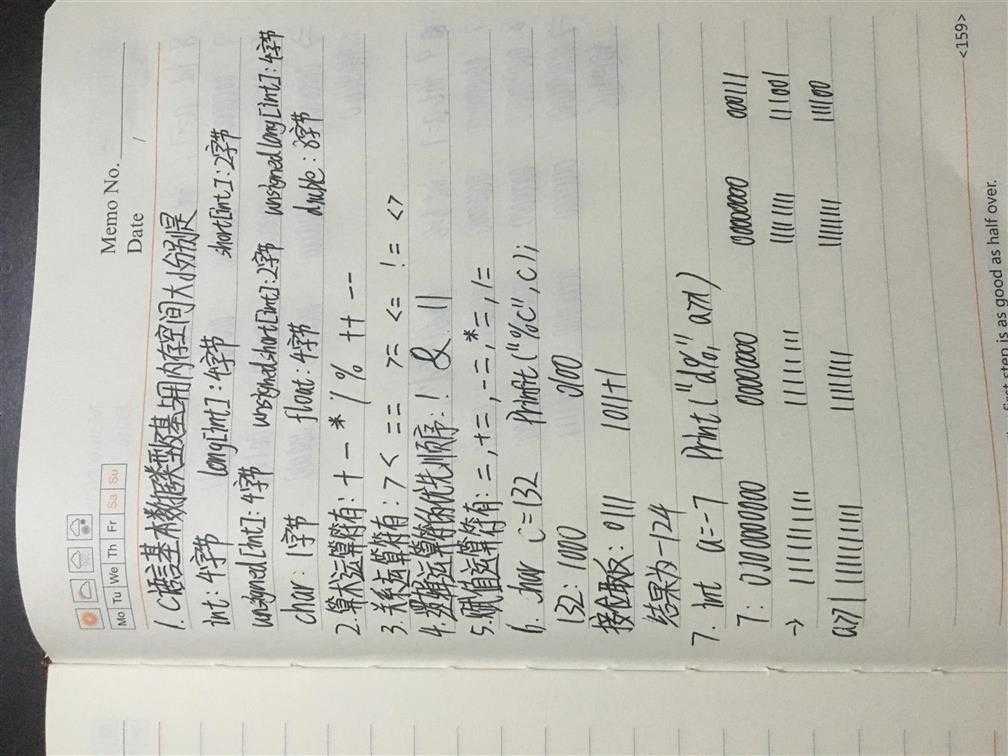 Memo No.
Mo Tu We Th Fr Sa Su
Date /
1. C语言基本数据类型及基占用内存空间大小分别是
int: 4字节 long[int]: 4字节 short[int]: 2字节
unsigned[int]: 4字节 unsigned short[int]: 2字节 unsigned long[int]: 4字节
char: 1字节 float: 4字节 double: 8字节
2. 算术运算符有: + - * / % ++ --
3. 关系运算符有: > < == >= <= != <>
4. 逻辑运算符的优先顺序: ! & ||
5. 赋值运算符有: =, +=, -=, *=, /=
6. char c=132 Printf("%c", c);
132: 1000 0100
按位取反: 0111 1011+1
结果为-124
7. int a=-7 Print("d%," a>>1)
7: 00000000 00000000 00000000 000111
→ 11111111 11111111 11111111 111001
a>>1 11111111 11111111 11111111 111100
first step is as good as half over.
<159>